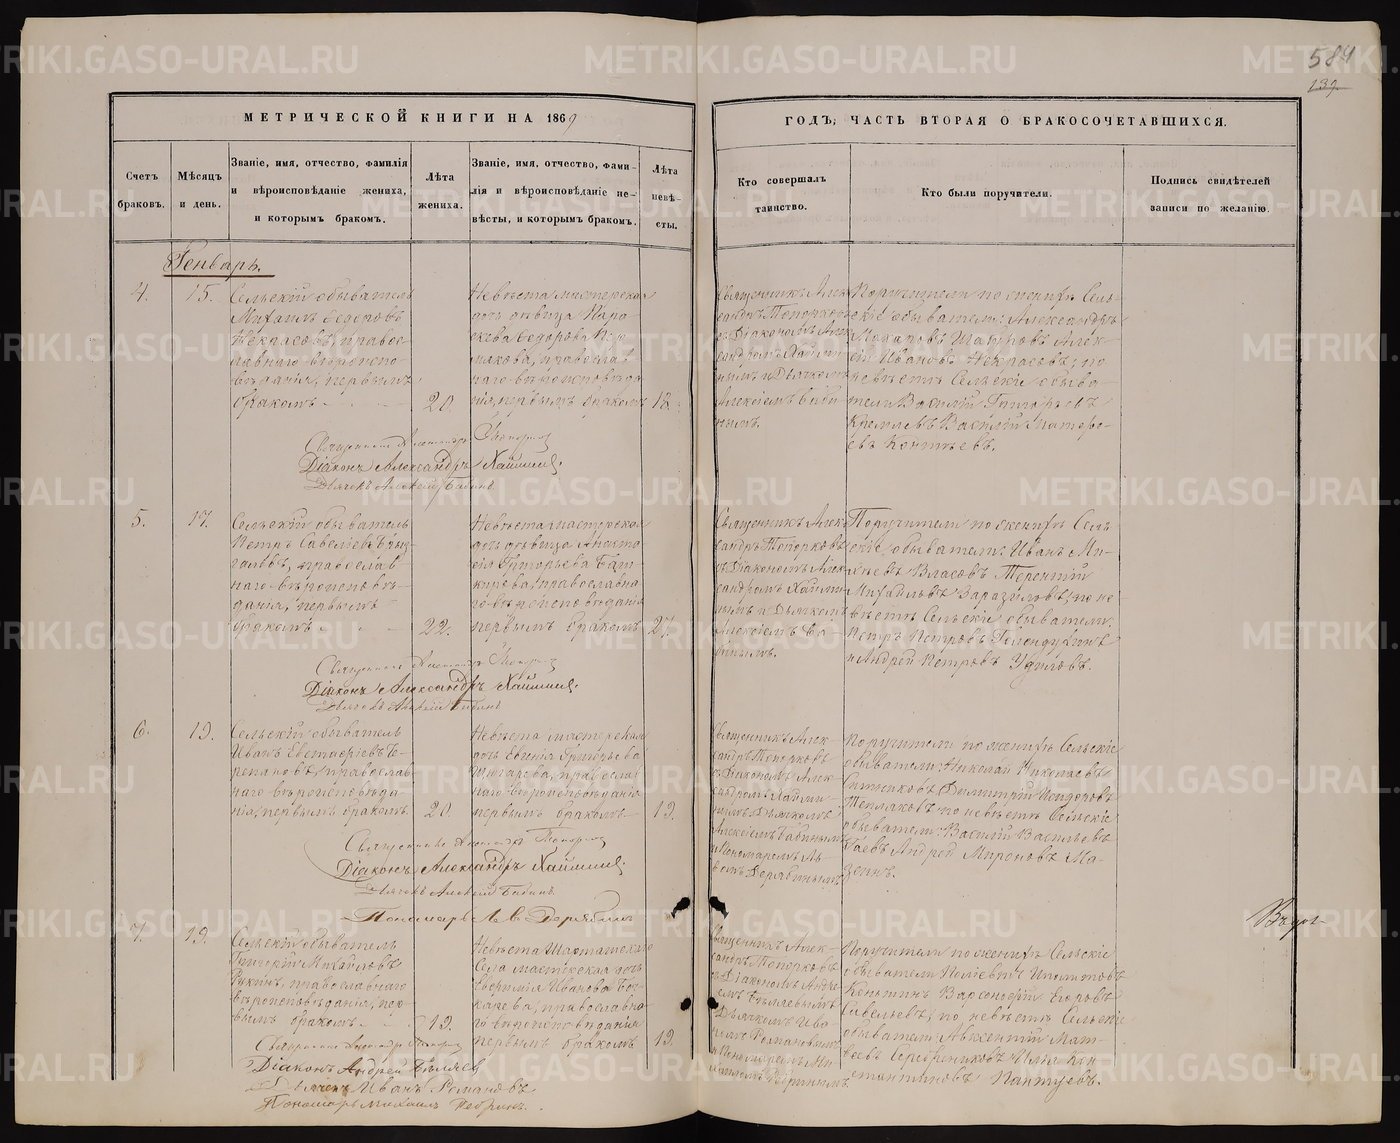 584
МЕТРИЧЕСКОЙ КНИГИ НА 1869
ГОДЪ, ЧАСТЬ ВТОРАЯ О БРАКОСОЧЕТАВШИХСЯ.
Счетъ браковъ.
Мѣсяцъ и день.
Званіе, имя, отчество, фамилія
и вѣроисповѣданіе жениха,
и которымъ бракомъ.
Лѣта
жениха.
Званіе, имя, отчество, фами-
лія и вѣроисповѣданіе не-
вѣсты, и которымъ бракомъ.
Лѣта
невѣ-
сты.
Кто совершалъ
таинство.
Кто были поручители.
Подпись свидѣтелей
записи по желанію.
Генварь.
4.
15.
Сельскій обыватель
Михаилъ Ѳедоровъ
Некрасовъ, православ-
наго вѣроиспо-
вѣданія, первымъ
бракомъ
20.
Невѣста мастерская
дочь дѣвица Пара-
скева Ѳедорова
православ-
наго вѣроисповѣда-
нія, первымъ бракомъ
18.
Священникъ Алек-
сандръ Топорковъ
съ Діакономъ Алек-
сандромъ
и Дьячкомъ
Алексіемъ Баби-
нымъ.
Поручители по женихѣ Сель-
скіе обыватели: Александръ
Макаровъ Шатуровъ Алек-
сій Ивановъ Некрасовъ; по
невѣстѣ Сельскіе обыва-
тели Василій Григорьевъ
Кремлевъ Василій Матѳе-
евъ Контѣевъ.
Священникъ Александръ Топорковъ
Діаконъ Александръ
Дьячекъ Алексій Бабинъ
5.
17.
Сельскій обыватель
Петръ Савеліевъ
православ-
наго вѣроисповѣ-
данія, первымъ
бракомъ
22.
Невѣста мастерская
дочь дѣвица Анаста-
сія Григорьева Баш-
кирева, православна-
го вѣроисповѣданія
первымъ бракомъ
27.
Священникъ Алек-
сандръ Топорковъ
съ Діакономъ Алек-
сандромъ
и Дьячкомъ
Алексіемъ Ба-
бинымъ.
Поручители по женихѣ Сель-
скіе обыватели: Иванъ Ми-
хѣевъ Власовъ Терентій
Михайловъ Заразиловъ; по не-
вѣстѣ Сельскіе обыватели:
Петръ Петровъ
и Андрей Петровъ Удиловъ.
Священникъ Александръ Топорковъ
Діаконъ Александръ
Дьячекъ Алексій Бабинъ
6.
19.
Сельскій обыватель
Иванъ Евстафіевъ Че-
репановъ, православ-
наго вѣроисповѣда-
нія, первымъ бракомъ
20.
Невѣста мастерская
дочь Евгенія Григорьева
православ-
наго вѣроисповѣданія
первымъ бракомъ
19.
Священникъ Алек-
сандръ Топорковъ
съ Діакономъ Алек-
сандромъ
Дьячкомъ
Алексіемъ Бабинымъ
и Пономаремъ Ль-
вомъ Дерябинымъ
Поручители по женихѣ Сельскіе
обыватели: Николай Николаевъ
Ситниковъ, Димитрій Исидоровъ
Тепляковъ по невѣстѣ Сельскіе
обыватели: Василій Васильевъ
Гаевъ Андрей Мироновъ Ма-
зеинъ.
Священникъ Александръ Топорковъ
Діаконъ Александръ
Дьячекъ Алексій Бабинъ
Пономарь Левъ Дерябинъ
7.
19.
Сельскій обыватель
Григорій Михайловъ
православнаго
вѣроисповѣданія, пер-
вымъ бракомъ
19.
Невѣста Шарташскаго
Села мастерская дочь
Евфимія Иванова Боч-
карева, православна-
го вѣроисповѣданія
первымъ бракомъ
19.
Священникъ Алек-
сандръ Топорковъ
съ Діакономъ Андре-
емъ Бѣляевымъ
Дьячкомъ Ива-
номъ Романовымъ
и Пономаремъ Ми-
хаиломъ
Поручители по женихѣ Сельскіе
обыватели Ипполитовъ
Варсонофій Егоровъ
Савельевъ, по невѣстѣ Сельскіе
обыватели: Авксентій Мат-
вѣевъ Серебренниковъ Илья Кон-
стантиновъ Пантуевъ.
Священникъ Александръ Топорковъ
Діаконъ Андрей Бѣляевъ
Дьячекъ Иванъ Романовъ
Пономарь Михаилъ
METRIKI.GASO-URAL.RU